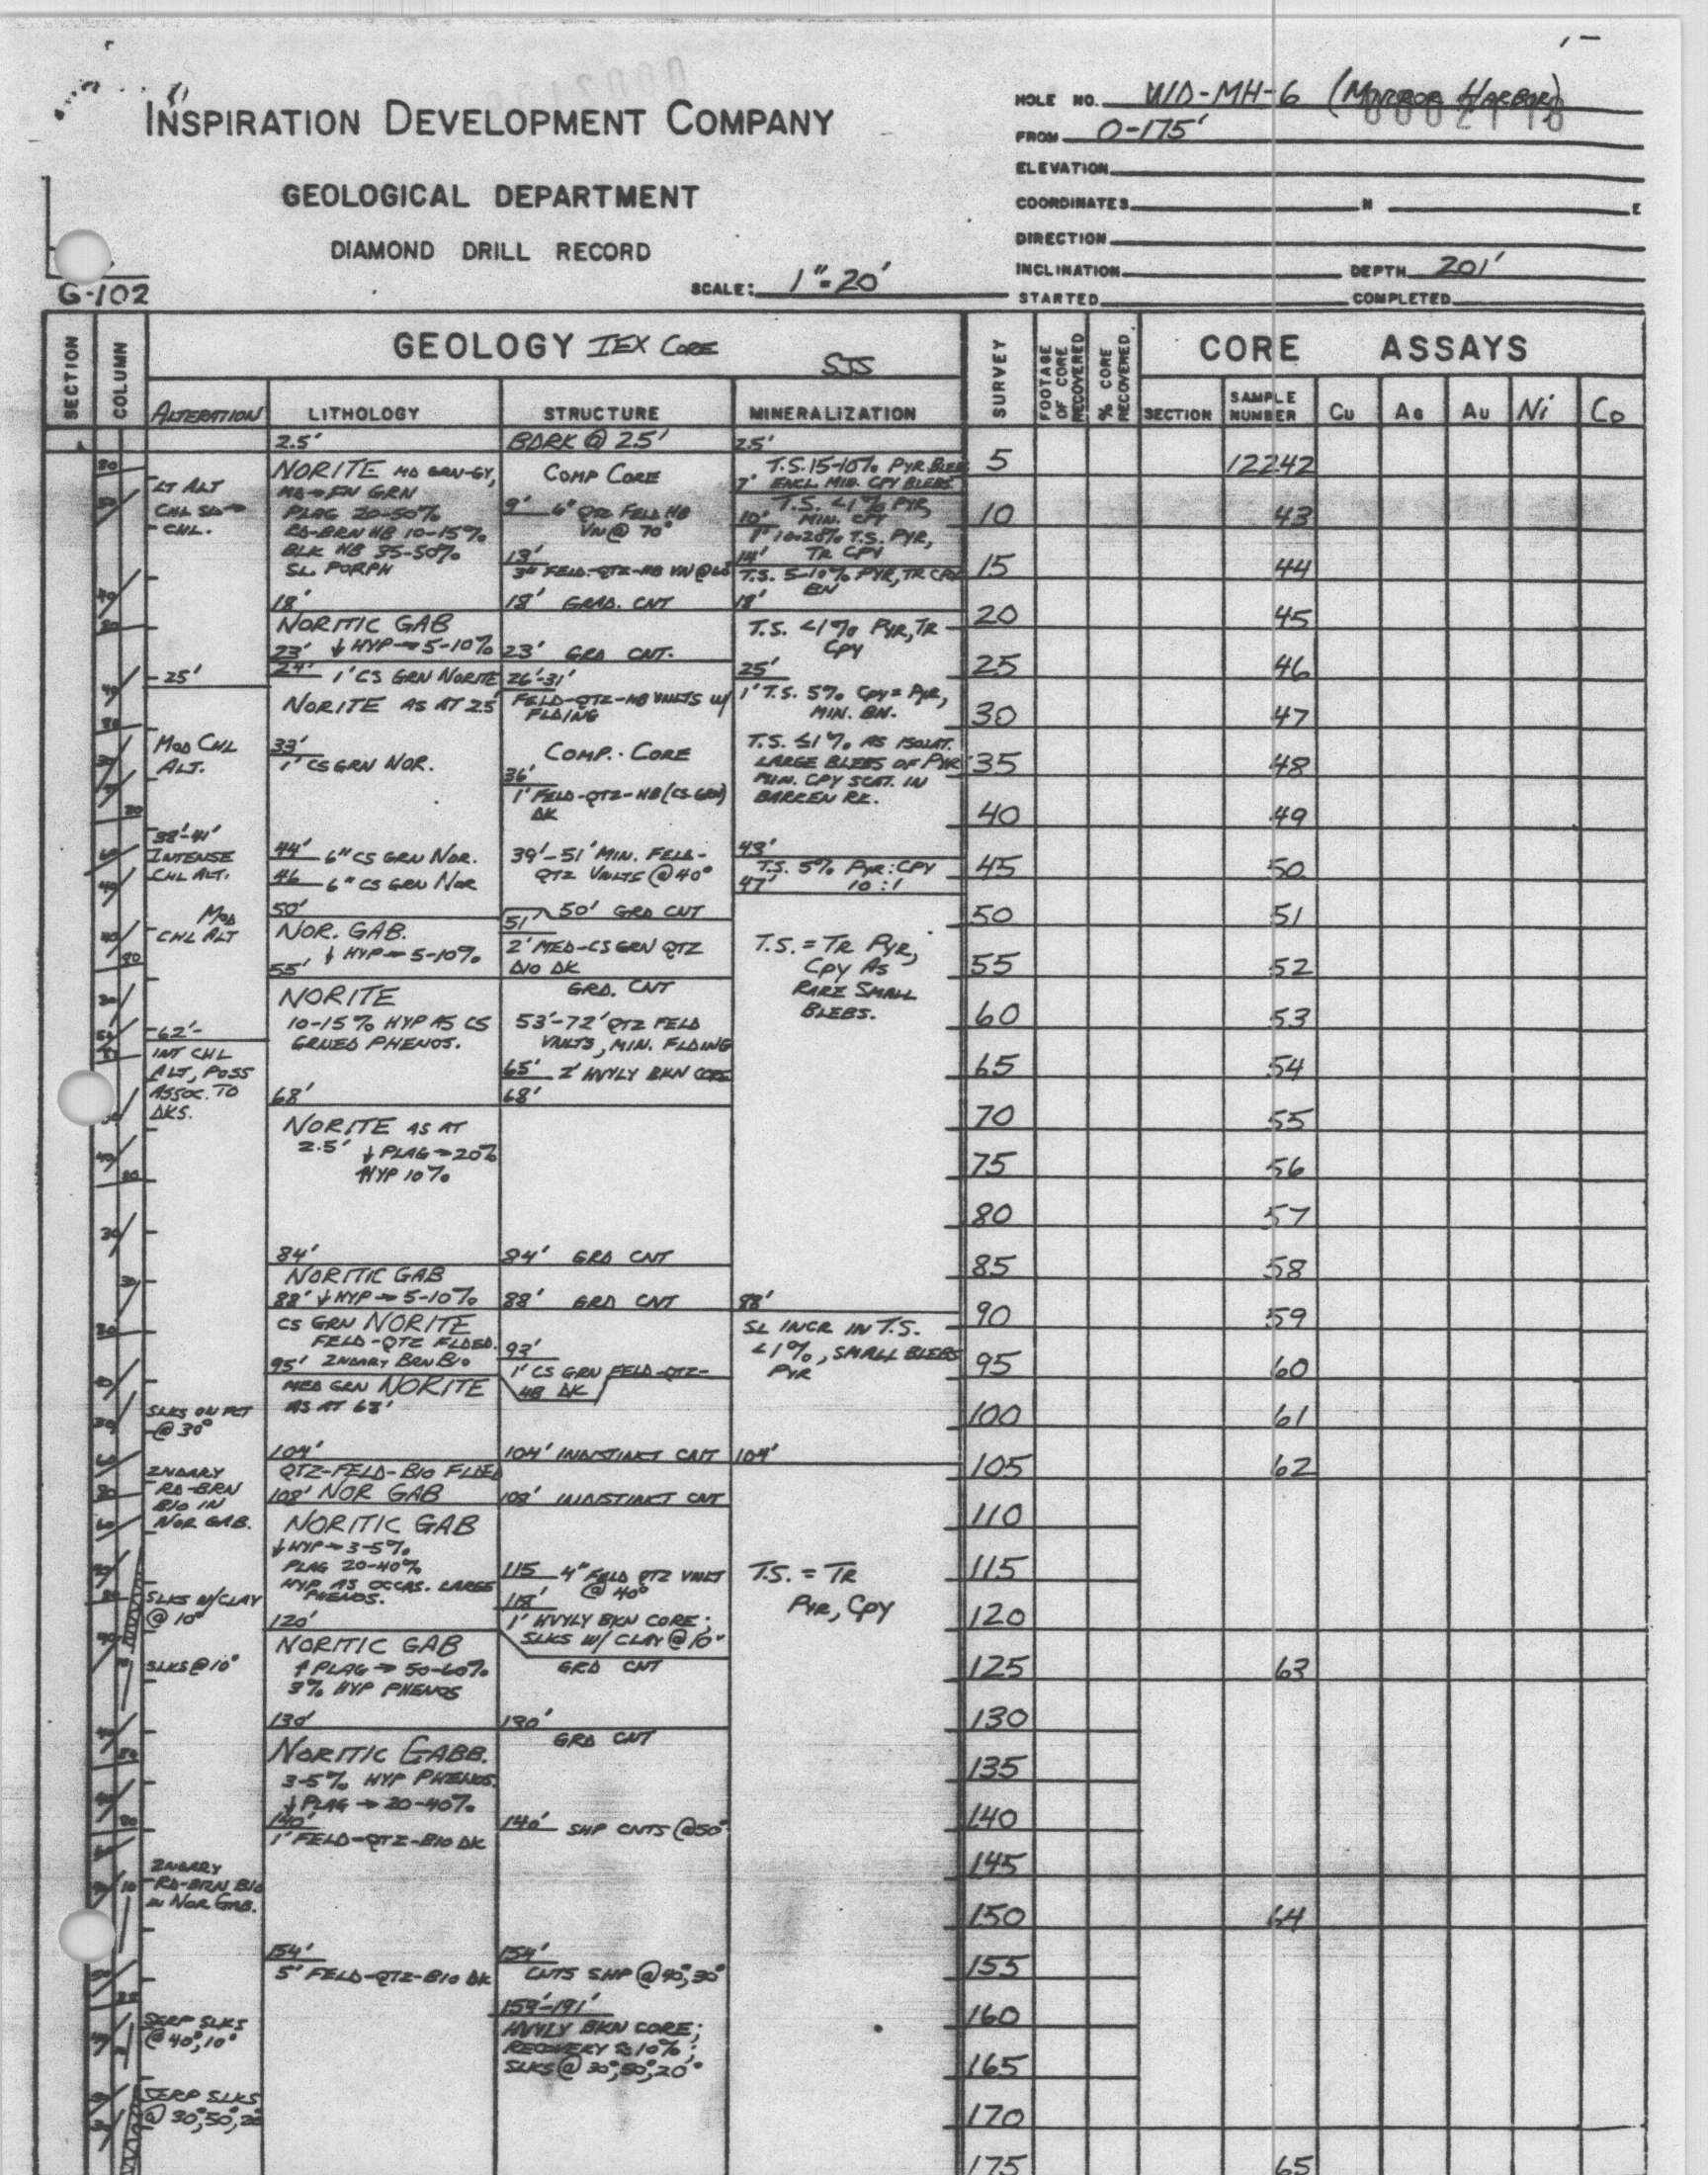 INSPIRATION DEVELOPMENT COMPANY
GEOLOGICAL DEPARTMENT
DIAMOND DRILL RECORD
SCALE: 1"=20'
G-102
HOLE NO. WD-MH-6 (MIRROR HARBOR)
FROM 0-175'
ELEVATION
COORDINATES N E
DIRECTION
INCLINATION DEPTH 201'
STARTED COMPLETED
SECTION
COLUMN
GEOLOGY IEX CORE
SJS
SURVEY
FOOTAGE OF CORE RECOVERED
% CORE RECOVERED
CORE ASSAYS
ALTERATION
LITHOLOGY
STRUCTURE
MINERALIZATION
SECTION
SAMPLE NUMBER
Cu
AG
AU
Ni
Co
LT ALT
CHL.
25'
MOD CHL
ALT.
38'-41'
INTENSE
CHL ALT.
MOD
CHL ALT
62'-
INT CHL
ALT, POSS
ASSOC. TO
DKS.
SLKS ON FCT
@ 30°
2NDARY
RD-BRN
BIO IN
NOR GAB.
SLKS W/CLAY
@ 10°
SLKS @ 10°
2NDARY
RD-BRN BIO
IN NOR GAB.
SERP SLKS
@ 40°, 10°
SERP SLKS
@ 30°, 50°, 20°
2.5'
NORITE MD GRN-GY,
MD→FN GRN
PLAG 20-50%
RD-BRN HB 10-15%
BLK HB 35-50%
SL. PORPH
18'
NORITIC GAB
23' ↓ HYP→5-10%
24' 1' CS GRN NORITE
NORITE AS AT 2.5'
33'
1' CS GRN NOR.
44' 6" CS GRN NOR.
46 6" CS GRN NOR
50'
NOR. GAB.
↓ HYP→5-10%
55'
NORITE
10-15% HYP AS CS
GRNED PHENOS.
68'
NORITE AS AT
2.5' ↓ PLAG→20%
↑HYP 10%
84'
NORITIC GAB
88' ↓HYP→5-10%
CS GRN NORITE
FELD-QTZ FLDED.
95' 2NDARY BRN BIO
MED GRN NORITE
AS AT 68'
104'
QTZ-FELD-BIO FLDED
108' NOR GAB
NORITIC GAB
↓HYP→3-5%
PLAG 20-40%
HYP AS OCCAS. LARGE
PHENOS.
120'
NORITIC GAB
↑ PLAG→50-60%
3% HYP PHENOS
130'
NORITIC GABB.
3-5% HYP PHENOS.
↓PLAG→20-40%
140'
1' FELD-QTZ-BIO DK
154'
5' FELD-QTZ-BIO DK
BDRK @ 2.5'
COMP CORE
9' 6" QTZ FELD HB
VN @ 70°
13'
3" FELD-QTZ-HB VN @
18' GRAD. CNT
23' GRD CNT.
26'-31'
FELD-QTZ-HB VNLTS W/
FLDING
COMP. CORE
36'
1' FELD-QTZ-HB (CS GRN)
DK
39'-51' MIN. FELD-
QTZ VNLTS @ 40°
50' GRD CNT
51'
2' MED-CS GRN QTZ
BIO DK
GRD. CNT
53'-72' QTZ FELD
VNLTS, MIN. FLDING
65' 2' HVYLY BKN CORE
68'
84' GRD CNT
88' GRD CNT
93'
1' CS GRN FELD-QTZ-
HB DK
104' INDISTINCT CNT
108' INDISTINCT CNT
115 4" FELD QTZ VNLT
@ 40°
118'
1' HVYLY BKN CORE;
SLKS W/ CLAY @ 10°
GRD CNT
130'
GRD CNT
140' SHP CNTS @50°
154'
CNTS SHP @ 40°, 30°
159'-191'
HVYLY BKN CORE;
RECOVERY ≈ 10%;
SLKS @ 30°, 50°, 20°
2.5'
T.S. 15-10% PYR BLEB
7' ENCL. MIN. CPY BLEBS
T.S. <1% PYR,
10' MIN. CPY
T.S. PYR,
14' TR CPY
T.S. 5-10% PYR, TR CPY
BN
18'
T.S. <1% PYR, TR
CPY
25'
1' T.S. 5% CPY = PYR,
MIN. BN.
T.S. ≤1% AS ISOLAT.
LARGE BLEBS OF PYR
MIN. CPY SCAT. IN
BARREN RK.
43'
T.S. 5% PYR:CPY
47' 10:1
T.S. = TR PYR,
CPY AS
RARE SMALL
BLEBS.
88'
SL INCR IN T.S.
<1%, SMALL BLEBS
PYR
104'
T.S. = TR
PYR, CPY
5 12242
10 43
15 44
20 45
25 46
30 47
35 48
40 49
45 50
50 51
55 52
60 53
65 54
70 55
75 56
80 57
85 58
90 59
95 60
100 61
105 62
110
115
120
125 63
130
135
140
145
150 64
155
160
165
170
175 65